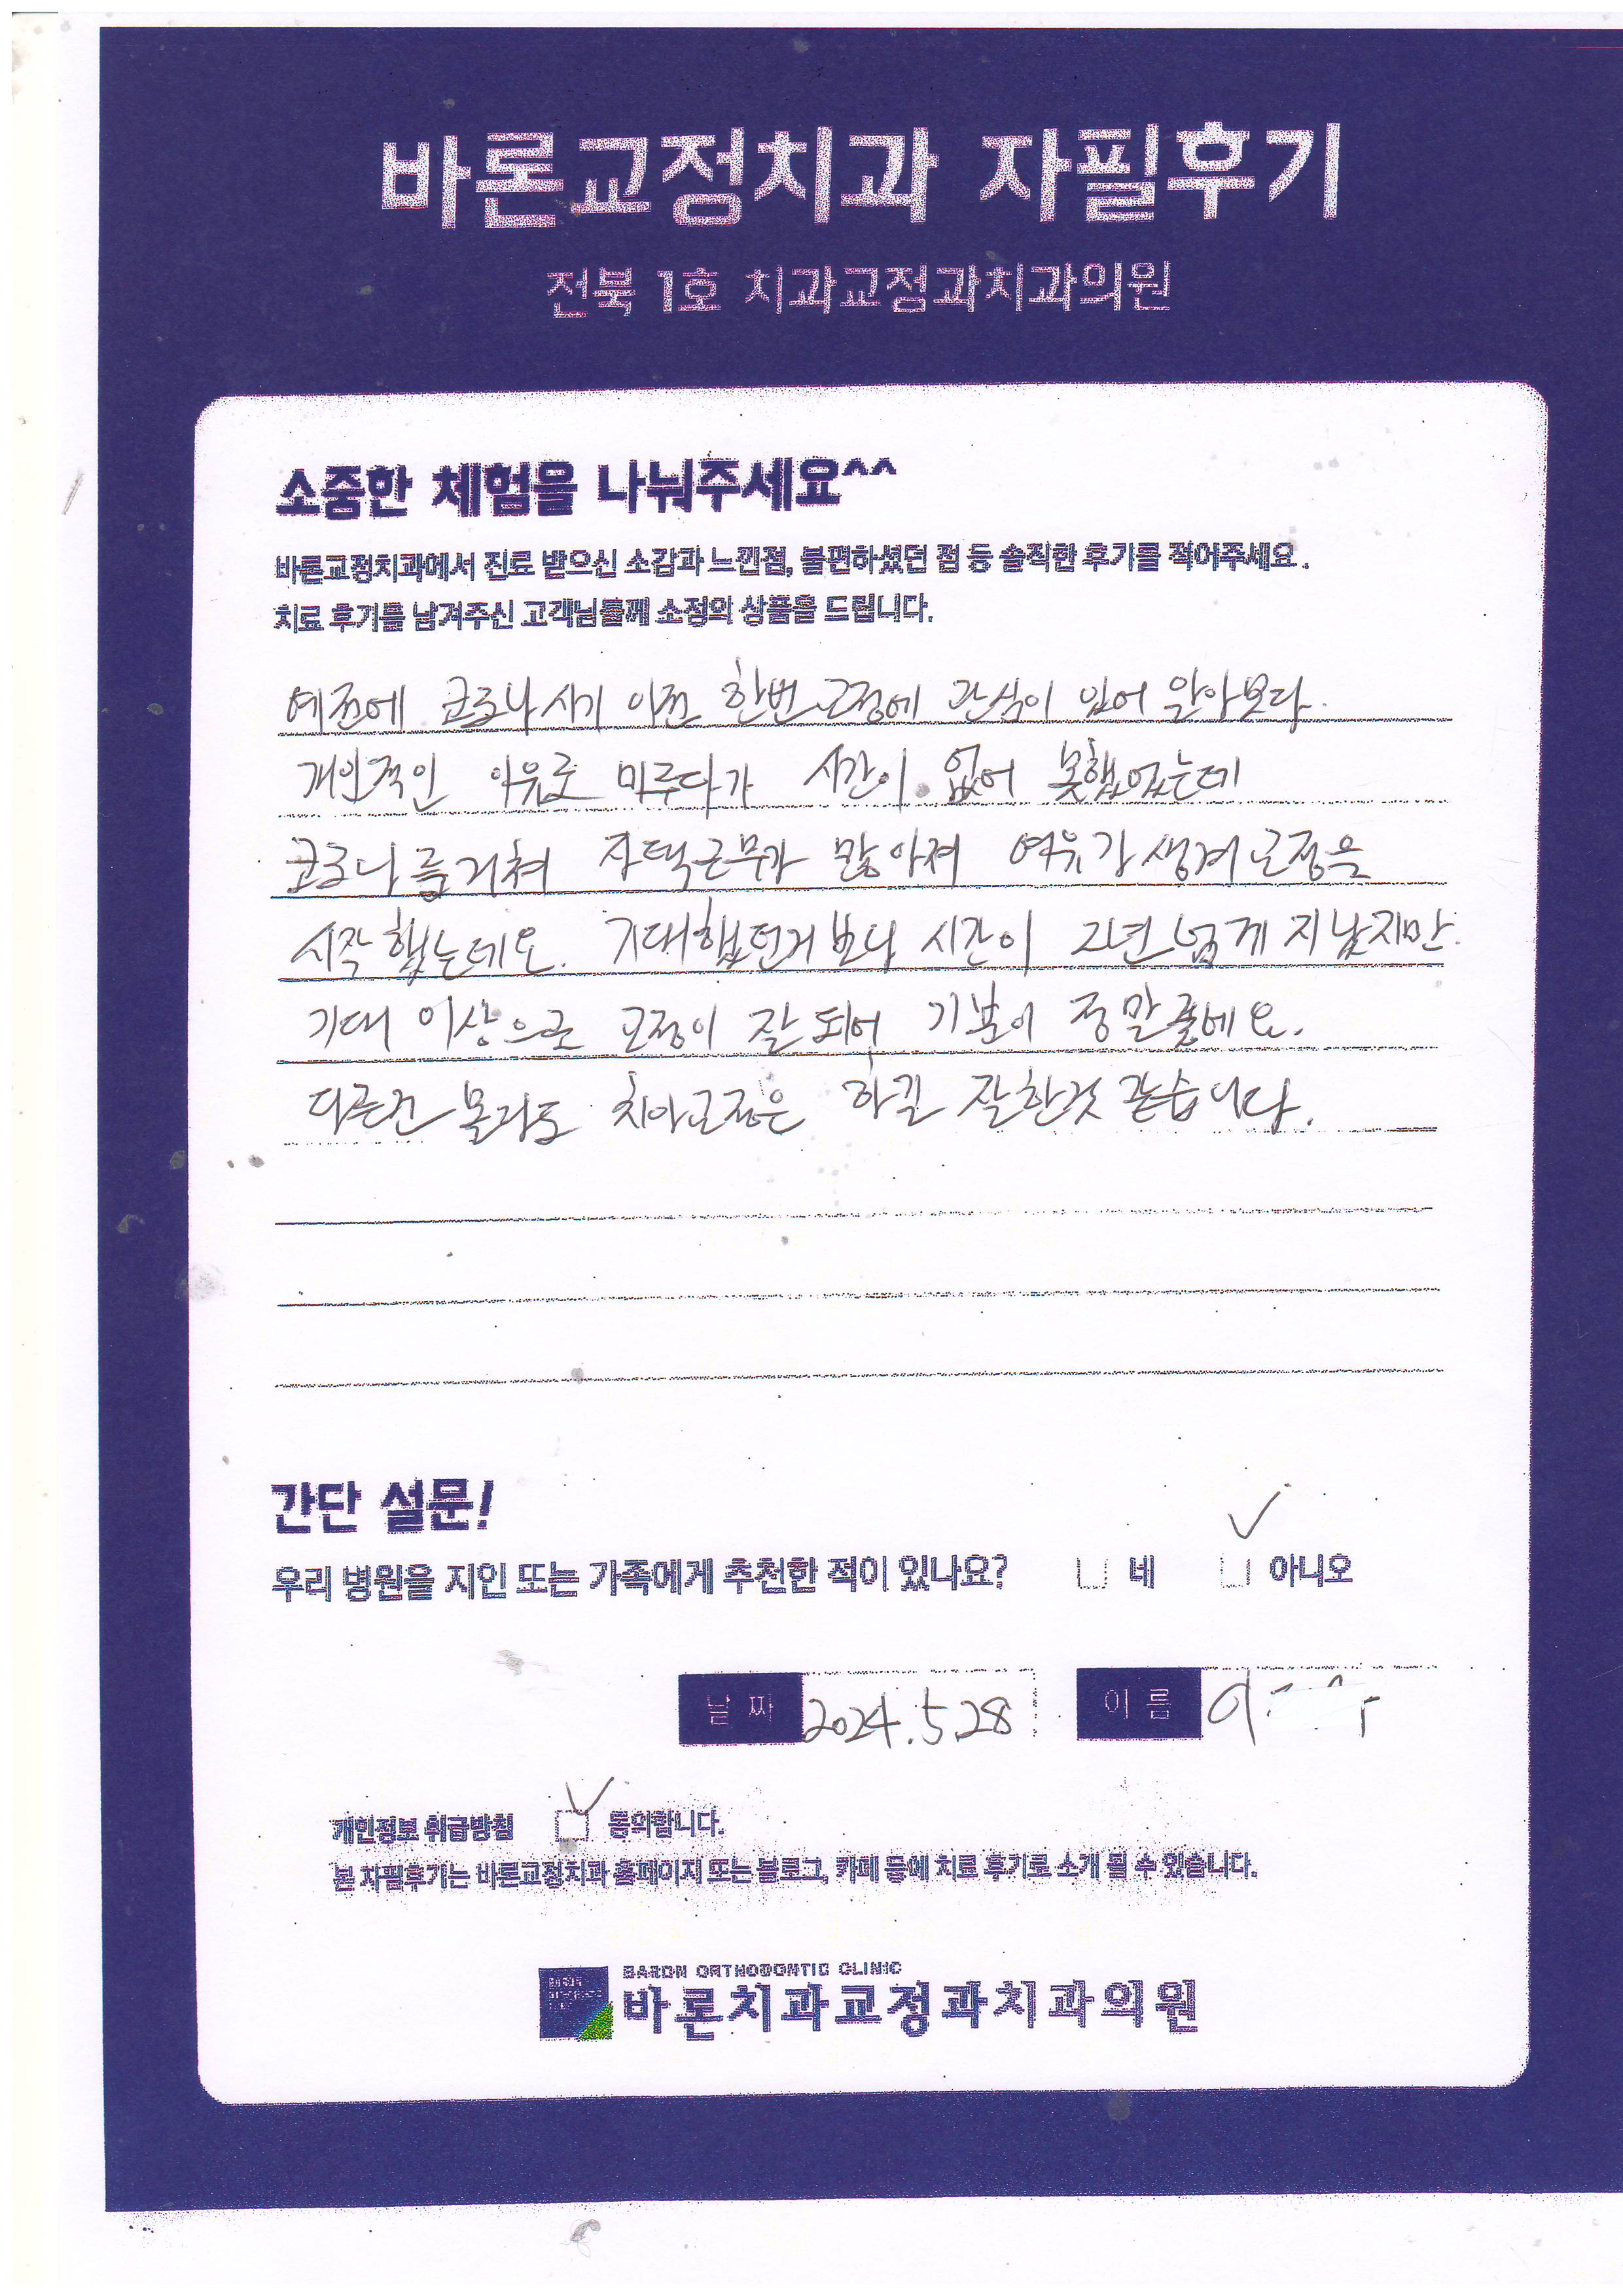 바론교정치과 자필후기
전북 1호 치과교정과치과의원
소중한 체험을 나눠주세요^^
바른교정치과에서 진료 받으신 소감과 느낀점, 불편하셨던 점 등 솔직한 후기를 적어주세요.
치료 후기를 남겨주신 고객님들께 소정의 상품을 드립니다.
예전에 코로나시기 이전 한번 교정에 관심이 있어 알아보다.
개인적인 이유로 미루다가 시간이 없어 못했었는데
코로나를 거쳐 재택근무가 많아져 여유가 생겨 교정을
시작했는데요. 기대했던거보다 시간이 2년 넘게 지났지만.
기대 이상으로 교정이 잘 되어 기분이 정말 좋네요.
다른건 몰라도 치아교정은 하길 잘한것 같습니다.
간단 설문!
우리 병원을 지인 또는 가족에게 추천한 적이 있나요? 네 아니오
날짜 2024.5.28 이름 이
개인정보 취급방침 동의합니다.
본 자필후기는 바른교정치과 홈페이지 또는 블로그, 카페 등에 치료 후기로 소개 될 수 있습니다.
BARON ORTHODONTIC CLINIC
바론치과교정과치과의원